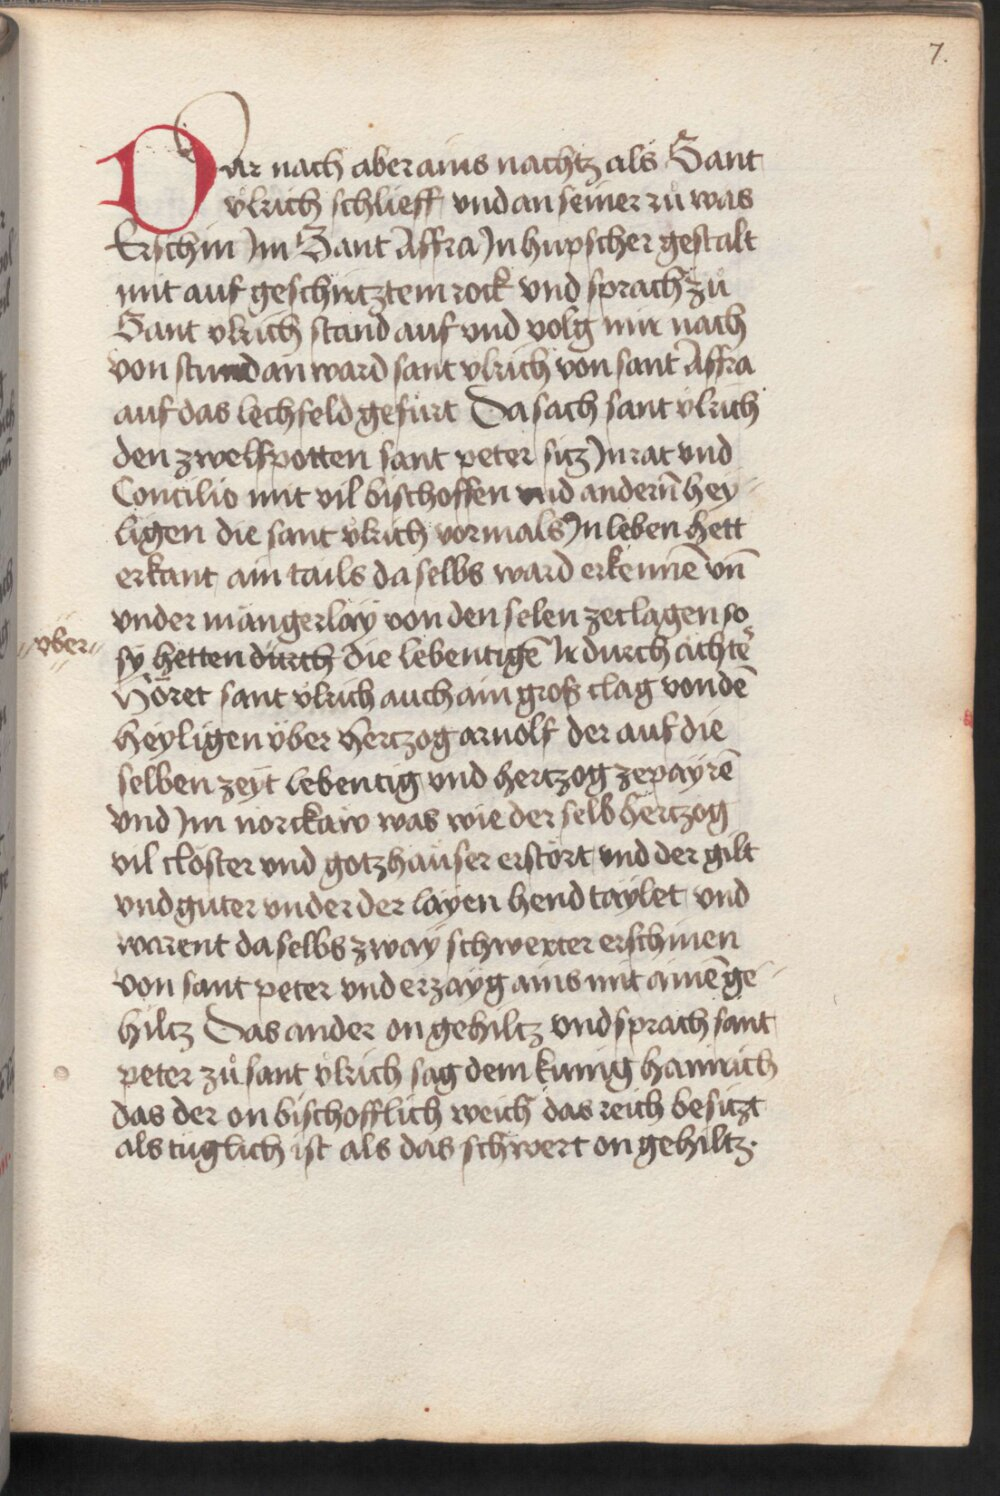 7.
Dar nach aber ains nachtz als Sant
vͦlrich schlieff vnd an seiner rů was
Erschin Jm Sant Affra Jn hupscher gestalt
mit auf geschirtztem rock vnd sprach zů
Sant vlrich stand auf vnd volg mir nach
von stund an ward sant vlrich von sant Affra
auf das lechfeld gefůrt Da sach sant vlrich
den zwelfpotten sant peter sitz Jn rat vnd
Concilio mit vil bischoffen vnd andern̄ hey-
ligen die sant vͦlrich vormals Jn leben hett
erkant ain tails da selbs ward erkennē vn̄
vnder mangerlay von den selen ze clagen so
//vber// sy hetten durch die lebentigē Jr durchächter
Höret sant vlrich auch ain groß clag von dē
heyligen v̈ber hertzog arnolf der auf die
selben zeyt lebentig vnd hertzog ze payrē
vnd Jm norckaw was wie der selb hertzog
vil clöster vnd gotzhaüser erstört vnd der gilt
vnd guter vnder der layen hend taylet vnd
warent da selbs zway schwerter erschinen
von sant peter vnd erzayg ains mit ainē ge-
hiltz Das ander on gehiltz vnd sprach sant
peter zů sant vͦlrich sag dem kunig hainrich
das der on bischofflich weich das reich besitzt
als tuglich ist als das schwert on gehiltz.